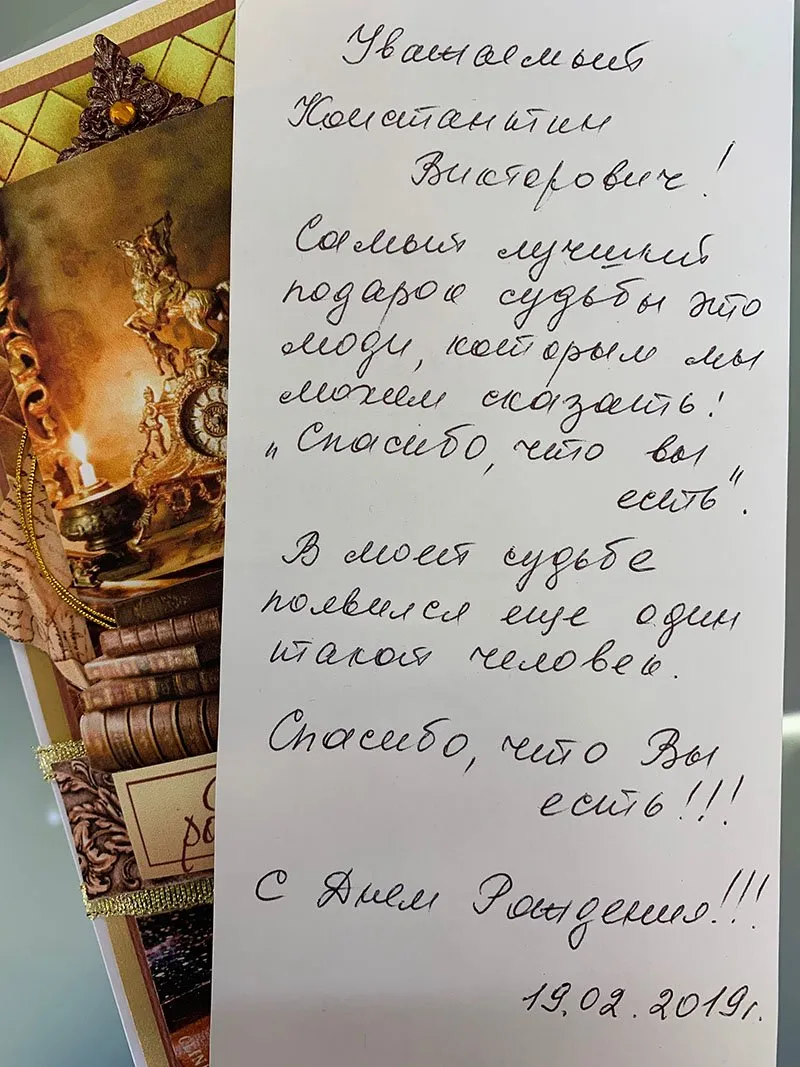 Уважаемый
Константин
Викторович!
Самый лучший
подарок судьбы это
люди, которым мы
можем сказать:
„Спасибо, что вы
есть".
В моей судьбе
появился еще один
такой человек.
Спасибо, что Вы
есть!!!
С Днем Рождения!!!
19.02.2019г.